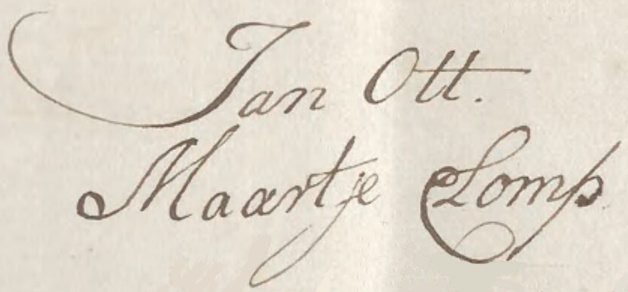 Jan Ott.
Maartje Lomp